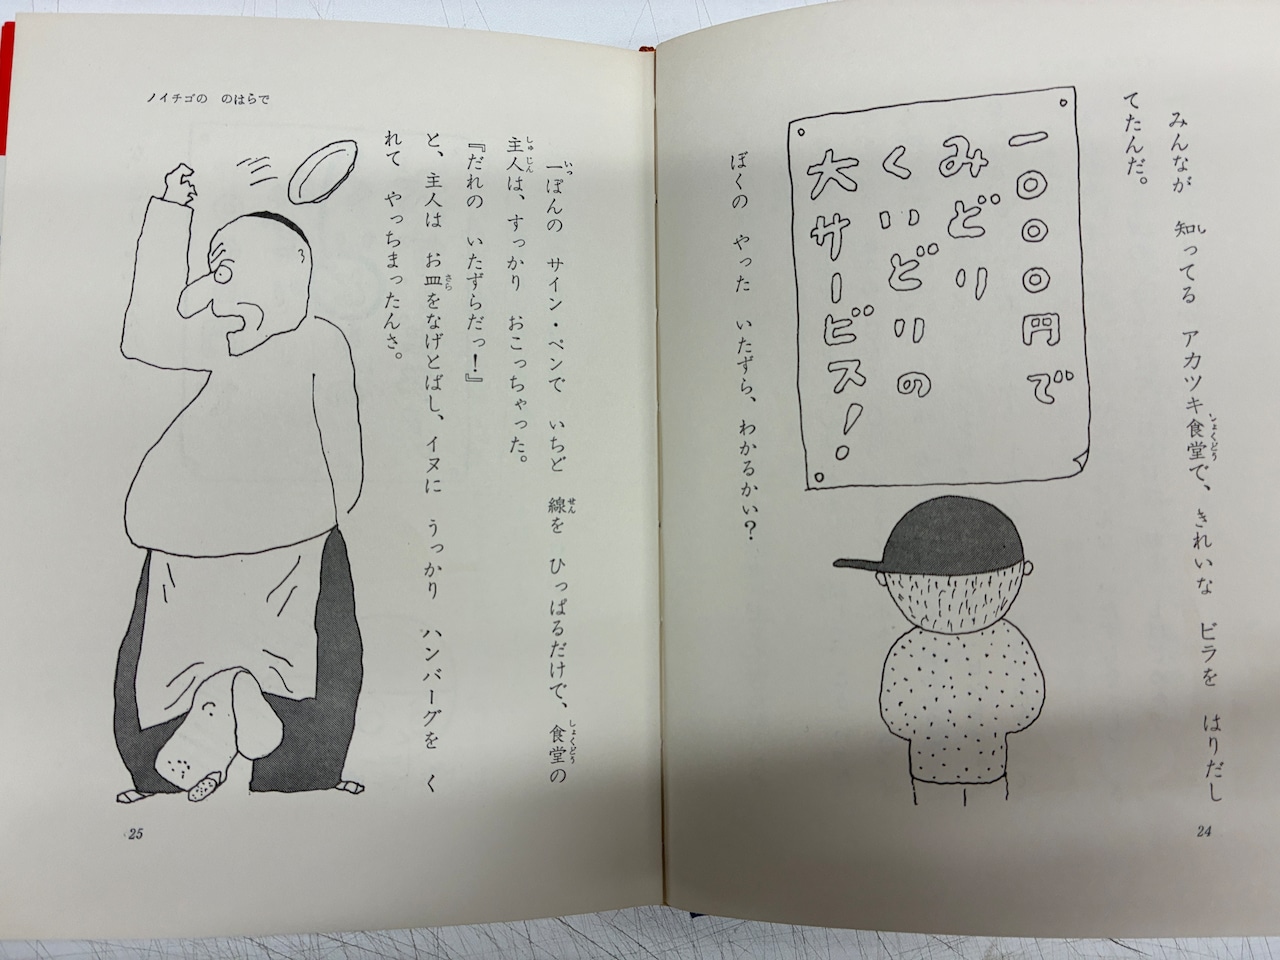 みんなが　知ってる　アカツキ食堂で、きれいな　ビラを　はりだし
てたんだ。
一〇〇〇円で
みどり
くいどりの
大サービス！
ぼくの　やった　いたずら、わかるかい？
24
ノイチゴの　のはらで
一ぽんの　サイン・ペンで　いちど　線を　ひっぱるだけで、食堂の
主人は、すっかり　おこっちゃった。
『だれの　いたずらだっ！』
と、主人は　お皿をなげとばし、イヌに　うっかり　ハンバーグを　く
れて　やっちまったんさ。
25